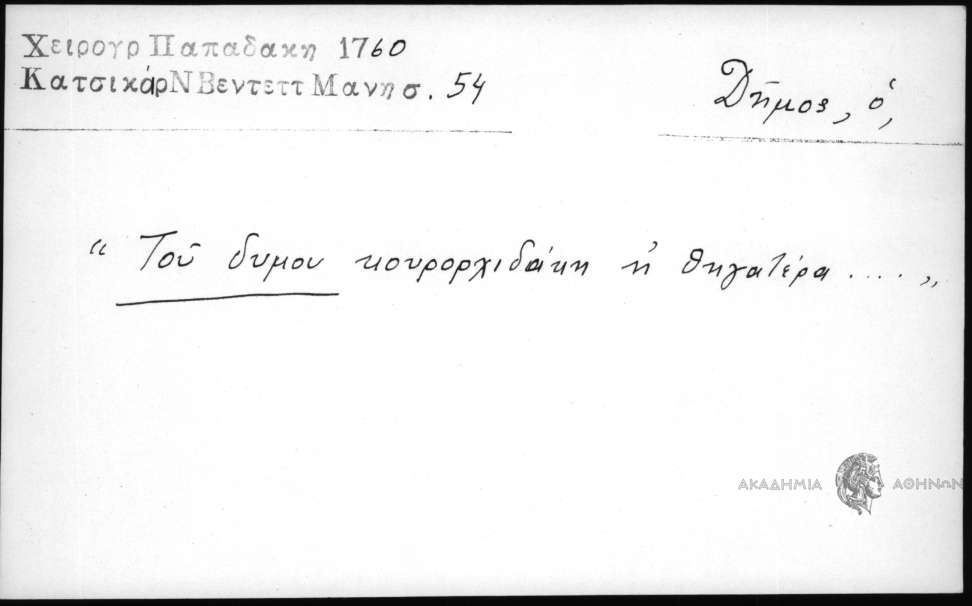 Χειρογρ Παπαδακη 1760
ΚατσικάρΝ Βεντεττ Μανης σ. 54
Δῆμος, ὁ,
“ Τοῦ δυμου κουρορχιδάκη ἡ θηγατέρα .... „
ΑΚΑΔΗΜΙΑ ΑΘΗΝΩΝ